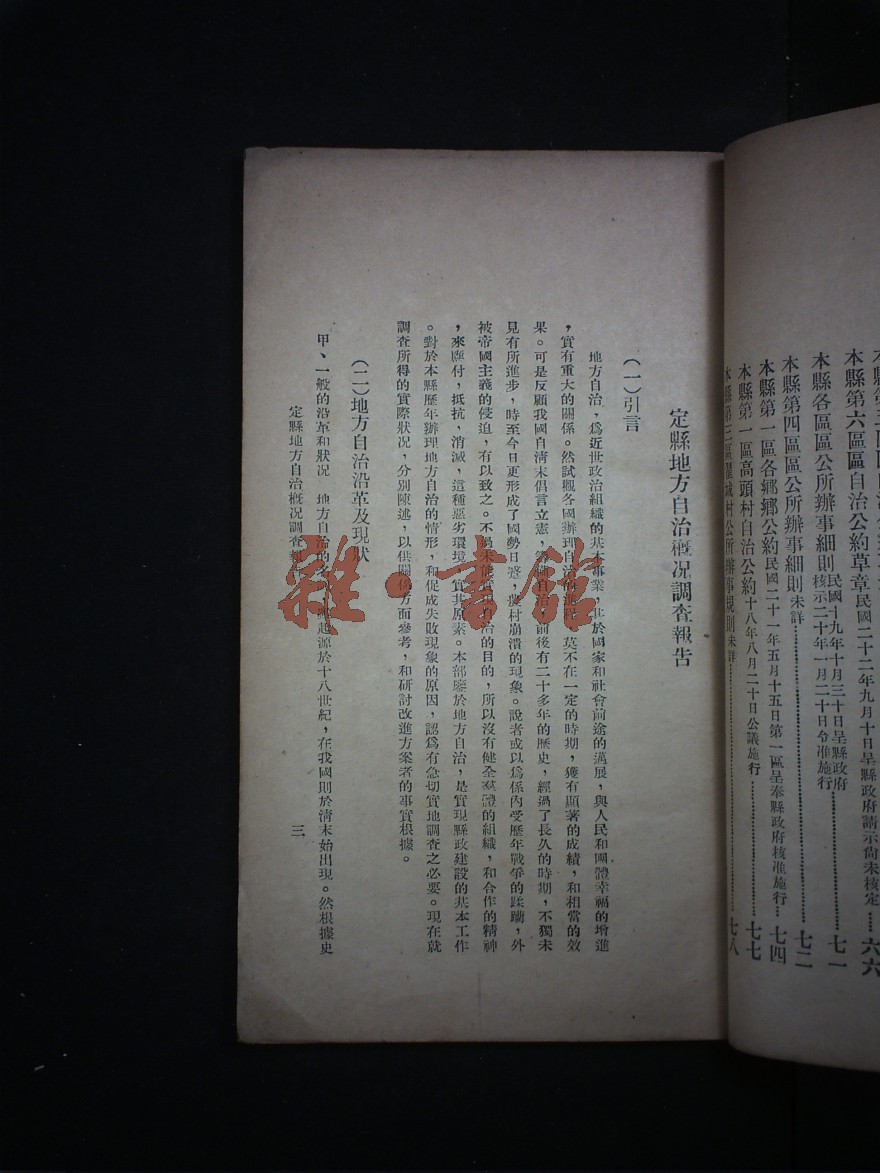 本縣第六區區自治公約草章民國二十二年九月十日呈縣政府請示尚未核定……六六
本縣各區區公所辦事細則民國十九年十月三十日呈縣政府核示二十年一月二十日令准施行……七一
本縣第四區區公所辦事細則未詳……七二
本縣第一區各鄉鄉公約民國二十一年五月十五日第一區呈奉縣政府核准施行…七四
本縣第一區高頭村自治公約十八年八月二十日公議施行……七七
本縣第三區翟城村公所辦事規則未詳……七八
定縣地方自治概況調查報告
(一)引言
地方自治，爲近世政治組織的基本事業，其於國家和社會前途的邁展，與人民和團體幸福的增進
，實有重大的關係。然試觀各國辦理自治的過程，莫不在一定的時期，獲有顯著的成績，和相當的效
果。可是反顧我國自清末倡言立憲，籌備自治，前後有二十多年的歷史，經過了長久的時期，不獨未
見有所進步，時至今日更形成了國勢日蹙，農村崩潰的現象。說者或以爲係內受歷年戰爭的蹂躪，外
被帝國主義的侵迫，有以致之。不過未能實現自治的目的，所以沒有健全羣體的組織，和合作的精神
，來應付，抵抗，消滅，這種惡劣環境，實其原素。本部鑒於地方自治，是實現縣政建設的基本工作
。對於本縣歷年辦理地方自治的情形，和促成失敗現象的原因，認爲有急切實地調查之必要。現在就
調查所得的實際狀況，分別陳述，以供關係方面參考，和研討改進方案者的事實根據。
(二)地方自治沿革及現狀
甲、一般的沿革和狀況　地方自治的名，起源於十八世紀，在我國則於清末始出現。然根據史
定縣地方自治概況調查報告
三
雜·書館